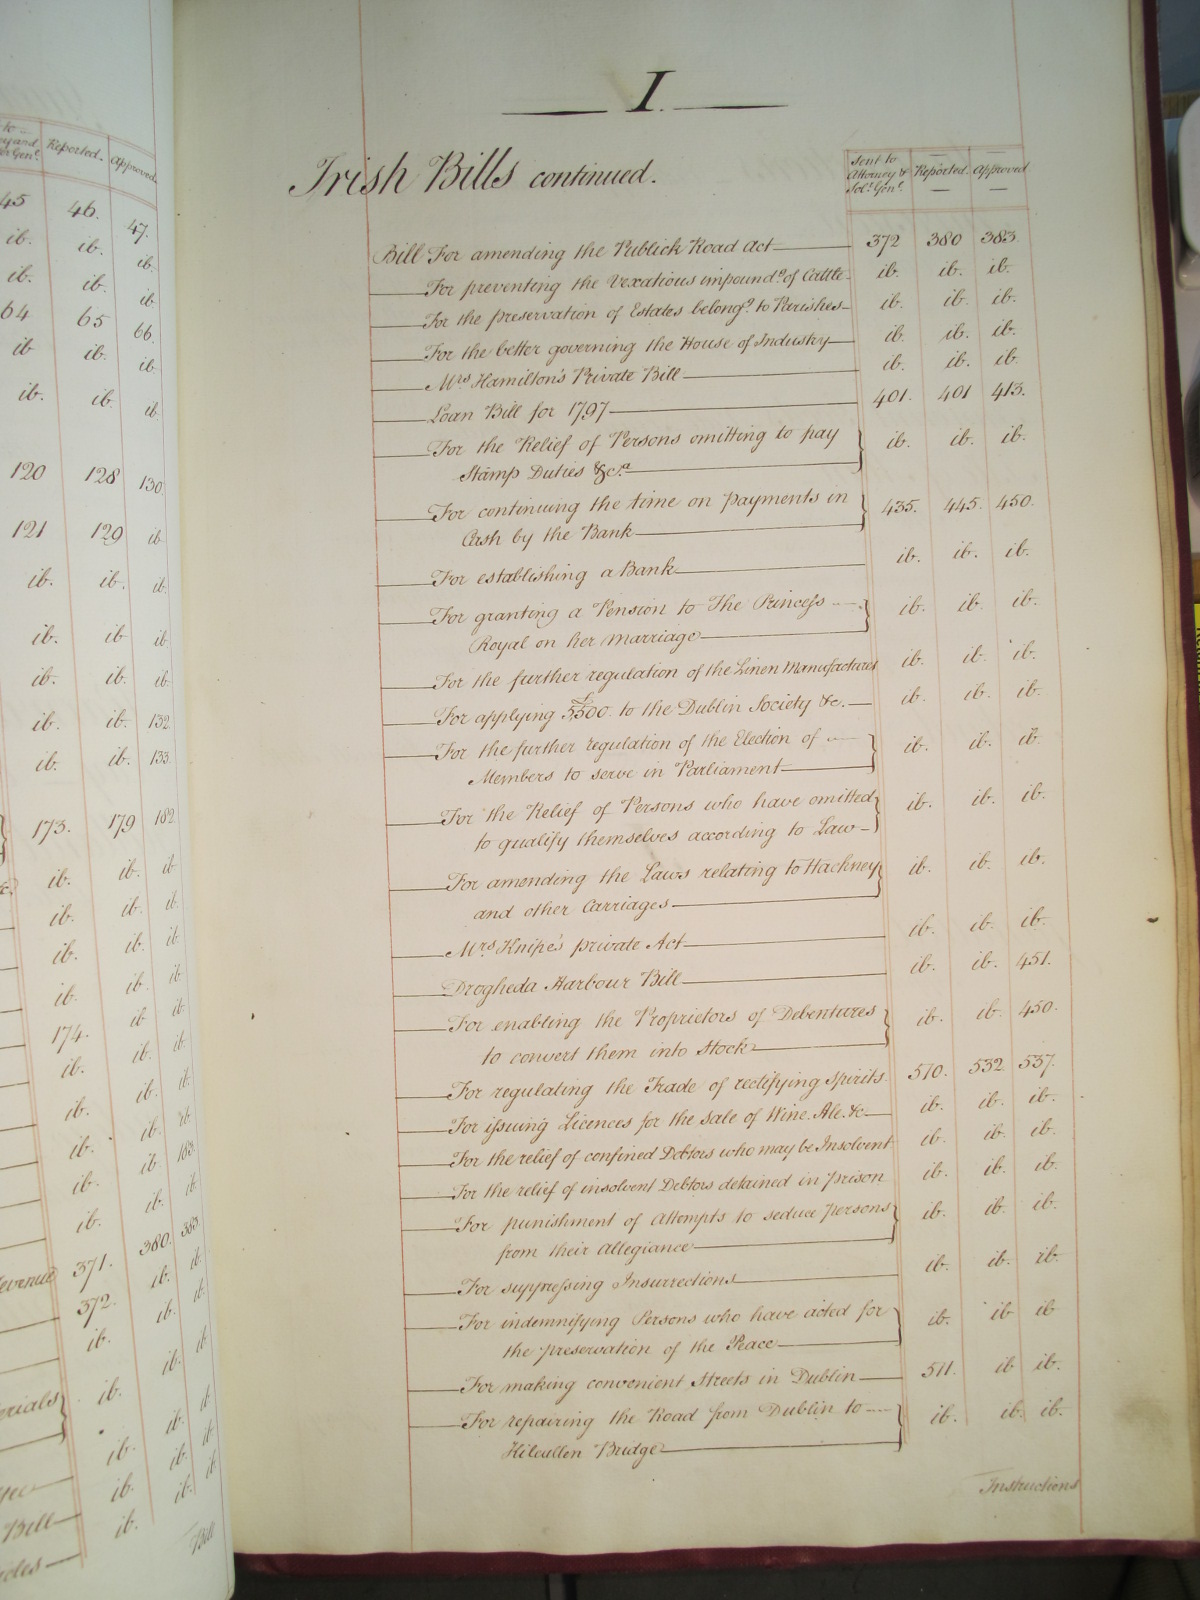 to
Reported. Approved
45 46. 47.
ib. ib. ib.
ib. ib. ib.
64 65 66.
ib ib. ib.
ib. ib. ib.
120 128 130
121 129 ib.
ib. ib. ib.
ib. ib ib.
ib. ib. ib.
ib. ib. 132
ib. ib. 133
173. 179 182.
ib. ib. ib
ib. ib. ib.
ib. ib. ib.
ib. ib. ib.
174. ib ib.
ib. ib. ib.
ib. ib. ib.
ib. ib. ib.
ib. ib. 183.
ib. ib. ib.
371. 380. 383.
372. ib. ib.
ib. ib. ib.
ib. ib. ib
ib. ib. ib.
ib. ib. ib.
Bill ib. ib. ib.
Bill
I.
Irish Bills continued.
Sent to Attorney & Sol.r Gen.l Reported. Approved
Bill For amending the Publick Road Act 372 380 383.
For preventing the Vexatious impound.g of Cattle ib. ib. ib.
For the preservation of Estates belong.g to Parishes ib. ib. ib.
For the better governing the House of Industry ib. ib. ib.
Mrs Hamilton's Private Bill ib. ib. ib.
Loan Bill for 1797 401. 401 413.
For the Relief of Persons omitting to pay
Stamp Duties &c.a ib. ib. ib.
For continuing the time on payments in
Cash by the Bank 435. 445. 450.
For establishing a Bank ib. ib. ib.
For granting a Pension to The Princess
Royal on her marriage ib. ib. ib.
For the further regulation of the Linen Manufactures ib. ib. ib.
For applying £5,500 to the Dublin Society &c. ib. ib. ib.
For the further regulation of the Election of
Members to serve in Parliament ib. ib. ib.
For the Relief of Persons who have omitted
to qualify themselves according to Law ib. ib. ib.
For amending the Laws relating to Hackney
and other Carriages ib. ib. ib.
Mrs Knipe's private Act ib. ib. ib.
Drogheda Harbour Bill ib. ib. 451.
For enabling the Proprietors of Debentures
to convert them into Stock ib. ib. 450.
For regulating the Trade of rectifying Spirits 510. 532 537.
For issuing Licences for the sale of Wine. Ale. &c ib. ib. ib.
For the relief of confined Debtors who may be Insolvent ib. ib. ib.
For the relief of insolvent Debtors detained in prison ib. ib. ib.
For punishment of Attempts to seduce persons
from their Allegiance ib. ib. ib.
For suppressing Insurrections ib. ib. ib.
For indemnifying Persons who have acted for
the preservation of the Peace ib. ib ib
For making convenient Streets in Dublin 511. ib ib.
For repairing the Road from Dublin to
Kilcullen Bridge ib. ib. ib.
Instructions